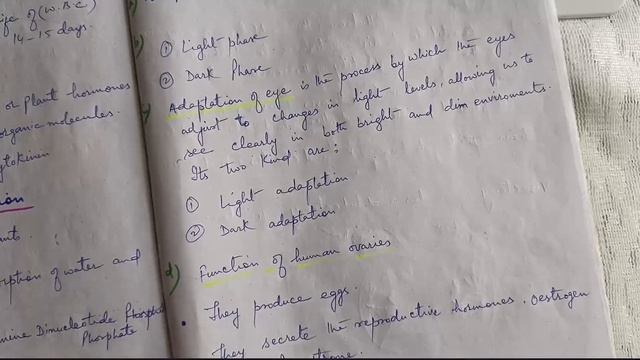 of (W.B.C)
14-15 days.
or Plant hormones
organic molecules.
ytokinin
ion
ants. :
rption of water and
mine Dinucleotide Phosphat
Phosphate
① Light phase
② Dark Phase
Adaptation of eye is the process by which the eyes
adjust to changes in light levels, allowing us to
see clearly in both bright and dim enviroments.
Its two kind are :
① Light adaptation
② Dark adaptation
d) Function of human ovaries
• They produce eggs.
They secrete the reproductive hormones, oestrogen